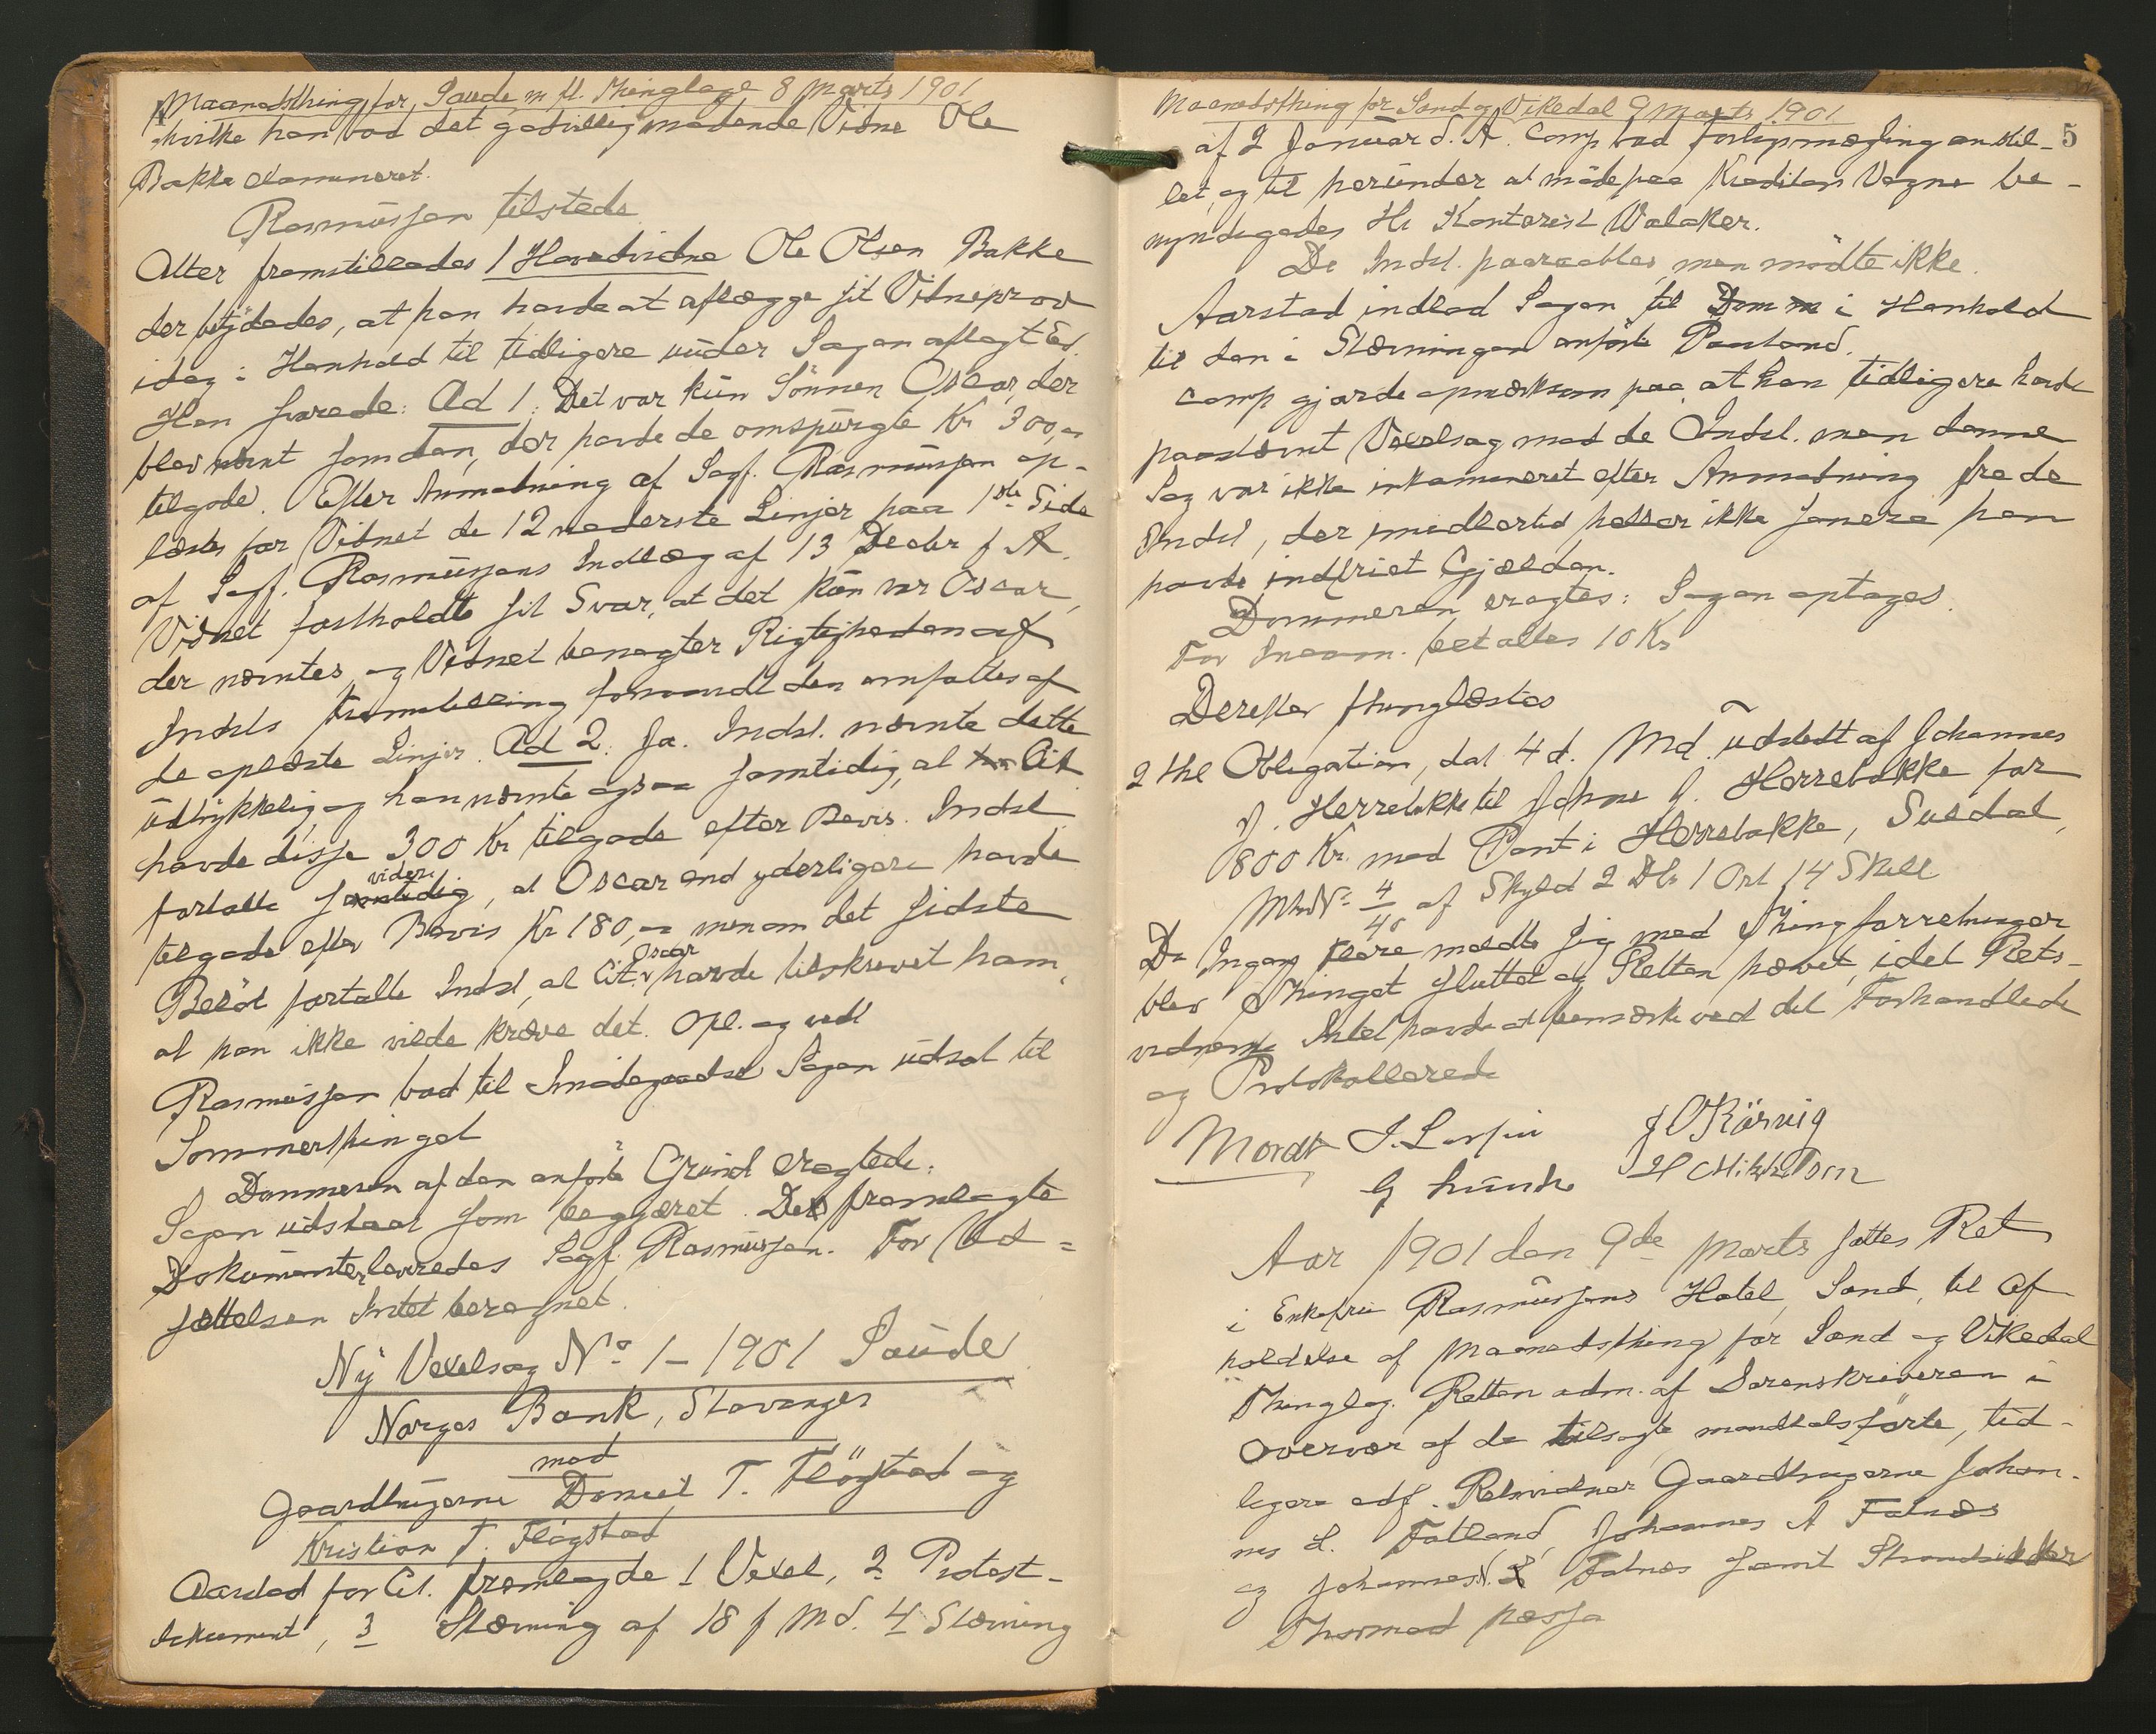 Maanedsthing for Saude m fl. Thinglage 8 Marts 1901
hvilke han bad det godvillig mødende Vidne Ole
Bakke examineret.
Rasmussen tilstede
Atter fremstilledes 1 Hovedvidne Ole Olsen Bakke
der betydedes, at han havde at aflægge sit Vidneprov
idag i Henhold til tidligere under Sagen aflagt Ed.
Han svarede: Ad 1: Det var kun Sönnen Oscar, der
blev nævnt som den, der havde de omspurgte Kr 300,-
tilgode. Efter Anmodning af Sagf. Rasmussen op-
læstes for Vidnet de 12 nederste Linjer paa 1ste Side
af Sagf. Rasmussens Indlæg af 13 Decbr f A.
Vidnet fastholdte sit Svar, at det kun var Oscar,
der nævntes og Vidnet benegter Rigtigheden af
Indsts fremstilling forsaavidt den omfattes af
de oplæste Linjer. Ad 2: Ja. Indst. nævnte dette
udtrykkelig og han nævnte ogsaa samtidig, at Cit
havde disse 300 Kr tilgode efter Bevis. Indst.
fortalte videre, at Oscar end yderligere havde
tilgode efter Bevis Kr 180,- men om det sidste
Belöb fortalte Indst, at Cit. Oscar havde tilskrevet ham,
at han ikke vilde kræve det. Opl. og vedt
Rasmussen bad til Imödegaaelse Sagen udsat til
Sommerthinget
Dommeren af den anførte Grund eragtede:
Sagen udstaar som begjæret. De fremlagte
Dokumenter leveredes Sagf. Rasmussen. For Ud=
sættelsen Intet beregnet.
Ny Vexelsag No 1 - 1901 Saude
Norges Bank, Stavanger
mod
Gaardbrugerne Daniel T. Flögstad og
Kristian T. Flögstad
Aarstad for Cit. fremlagde 1 Vexel, 2 Protest-
dokument, 3 Stævning af 18 f Md. 4 Stævning
Maanedsthing for Sand og Vikedal 9 Marts 1901
5
af 2 Januar d. A. Comp bad forligsmægling anstil-
let, og til herunder at möde paa Kreditors Vegne be-
myndigedes Hr Kontorist Walaker.
De Indst. paaraabtes, men mödte ikke.
Aarstad indlod Sagen til Dom i Henhold
til den i Stævningen anførte Paastand.
Comp gjorde opmærksom paa, at han tidligere havde
paastævnt Vexelsag mod de Indst. men denne
Sag var ikke inkamineret efter Anmodning fra de
Indst, der imidlertid heller ikke senere hen
havde indfriet Gjælden.
Dommeren eragtes: Sagen optages.
For Incam. betaltes 10 Kr
Derefter thinglæstes
2 thl Obligation, dat 4 d. Md. udstedt af Johannes
J. Herrebakke til Johne J. Herrebakke for
800 Kr. med Pant i Herrebakke, Suldal,
MtrNo 4/40 af Skyld 2 Dlr 1 Ort 14 Skill
Da Ingen flere meldte sig med Thingforretninger
blev Thinget sluttet og Retten hævet, idet Rets-
vidnerne Intet havde at bemærke ved det Forhandlede
og Protokollerede
Mordt J. Larsen J O Rörvig
G Lunde H Mikkelsen
Aar 1901 den 9de Marts sattes Ret
i Enkefru Rasmussens Hotel, Sand, til Af
holdelse af Maanedsthing for Sand og Vikedal
Thinglag. Retten adm. af Sorenskriveren i
Overvær af de tilsagte mandtalsførte, tid-
ligere edf. Retsvidner Gaardbrugerne Johan-
nes L. Fatland, Johannes A Fatnes
og Johannes N. Fatnes samt Strandsidder
Thormod